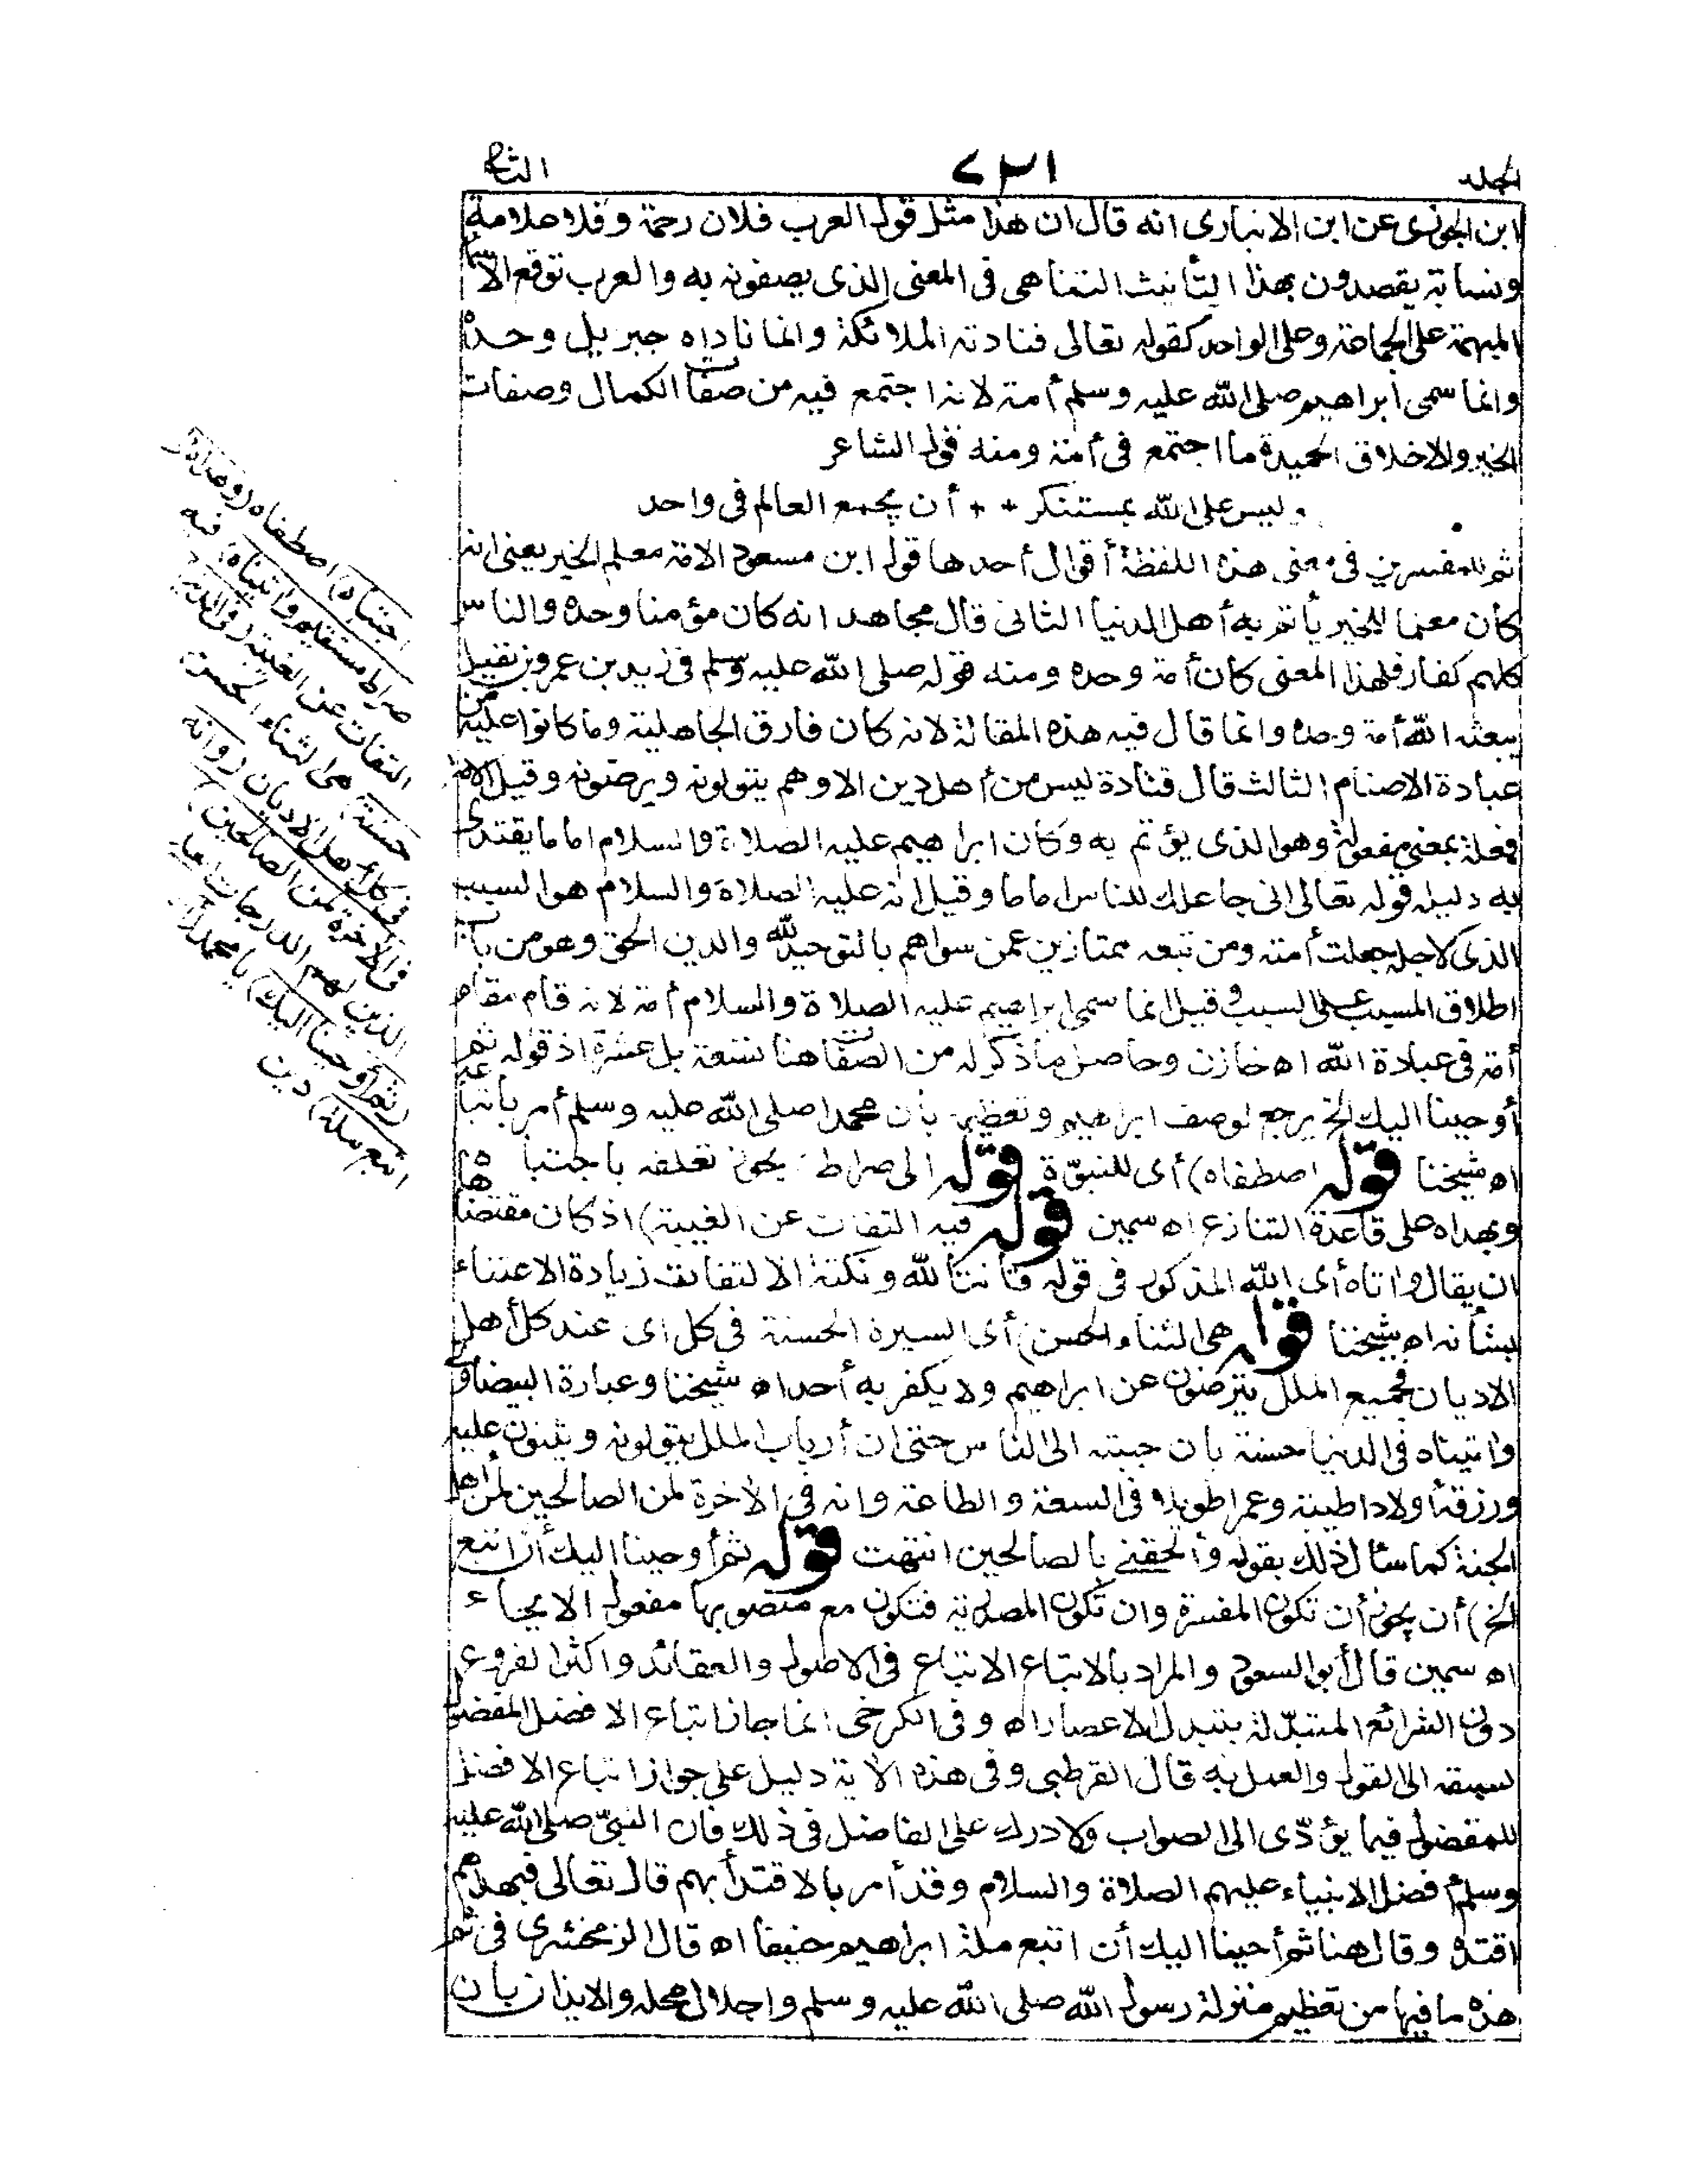 الجلد ٧٣١ الثانى
ابن الجوزى عن ابن الانبارى انه قال ان هذا مثل قول العرب فلان رحمة وفلان علامة
ونسابة يقصدون بهذا التأنيث التناهى فى المعنى الذى يصفونه به والعرب توقع الأسماء
المبهمة على الجماعة وعلى الواحد كقوله تعالى فنادته الملائكة وانما ناداه جبريل وحده
وانما سمى ابراهيم صلى الله عليه وسلم أمة لانه اجتمع فيه من صفات الكمال وصفات
الخير والاخلاق الحميدة ما اجتمع فى أمة ومنه قول الشاعر
وليس على الله بمستنكر ++ أن يجمع العالم فى واحد
ثم للمفسرين فى معنى هذه اللفظة أقوال أحدها قول ابن مسعود الامة معلم الخير يعنى انه
كان معلما للخير يأتم به أهل الدنيا الثانى قال مجاهد انه كان مؤمنا وحده والناس
كلهم كفار فلهذا المعنى كان أمة وحده ومنه قوله صلى الله عليه وسلم فى زيد بن عمرو بن نفيل
يبعثه الله أمة وحده وانما قال فيه هذه المقالة لانه كان فارق الجاهلية وما كانوا عليه من
عبادة الاصنام الثالث قال قتادة ليس من أهل دين الا وهم يتولونه ويرضونه وقيل الامة
فعلة بمعنى مفعولة وهو الذى يؤتم به وكان ابراهيم عليه الصلاة والسلام اماما يقتدى
به دليله قوله تعالى انى جاعلك للناس اماما وقيل انه عليه الصلاة والسلام هو السبب
الذى لاجله جعلت أمته ومن تبعه ممتازين عمن سواهم بالتوحيد لله والدين الحق وهو من باب
اطلاق المسبب على السبب وقيل انما سمى ابراهيم عليه الصلاة والسلام أمة لانه قام مقام
أمة فى عبادة الله اه خازن وحاصل ما ذكر له من الصفات هنا تسعة بل عشرة اذ قوله ثم
أوحينا اليك الخ يرجع لوصف ابراهيم وتعظيمه بأن محمدا صلى الله عليه وسلم أمر باتباعه
اه شيخنا قوله اصطفاه) أى للنبوّة قوله الى صراط) يجوز تعلقه باجتباه
وبهداه على قاعدة التنازع اه سمين قوله فيه التفات عن الغيبة) اذ كان مقتضاها
ان يقال واتاه أى الله المذكور فى قوله قانتا لله ونكتة الالتفات زيادة الاعتناء
بشأنه اه شيخنا قوله هى الثناء الحسن) أى السيرة الحسنة فى كل أى عند كل أهل
الاديان فجميع الملل يترضون عن ابراهيم ولا يكفر به أحد اه شيخنا وعبارة البيضاوى
واتيناه فى الدنيا حسنة بان حببه الى الناس حتى ان أرباب الملل يتولونه ويثنون عليه
ورزقه أولادا طيبة وعمرا طويلا فى السعة والطاعة وانه فى الآخرة لمن الصالحين لمن أهل
الجنة كما سأل ذلك بقوله وألحقنى بالصالحين انتهت قوله ثم أوحينا اليك أن اتبع
الخ) أن يجوز أن تكون المفسرة وان تكون المصدرية فتكون مع منصوبها مفعول الايحاء
اه سمين قال أبو السعود والمراد بالاتباع الاتباع فى الاصول والعقائد واكثر الفروع
دون الشرائع المتبدّلة بتبدل الاعصار اه وفى الكرخى انما جاز اتباع الافضل المفضول
لسبقه الى القول والعمل به قال القرطبى وفى هذه الآية دليل على جواز اتباع الافضل
للمفضول فيما يؤدّى الى الصواب ولا درك على الفاضل فى ذلك فان النبىّ صلى الله عليه
وسلم أفضل الانبياء عليهم الصلاة والسلام وقد أمر بالاقتدأ بهم قال تعالى فبهداهم
اقتده وقال هنا ثم أوحينا اليك أن اتبع ملة ابراهيم حنيفا اه قال الزمخشرى فى ثم
هذه ما فيها من تعظيم منزلة رسول الله صلى الله عليه وسلم واجلال محله والايذان بان
اجتباه) اصطفاه (وهداه الى
صراط مستقيم واتيناه) فيه
التفات عن الغيبة (فى الدنيا
حسنة) هى الثناء الحسن
فى كل أهل الاديان (وانه
فى الآخرة لمن الصالحين)
الذين لهم الدرجات العلى
(ثم أوحينا اليك) يا محمد (أن
اتبع ملة) دين